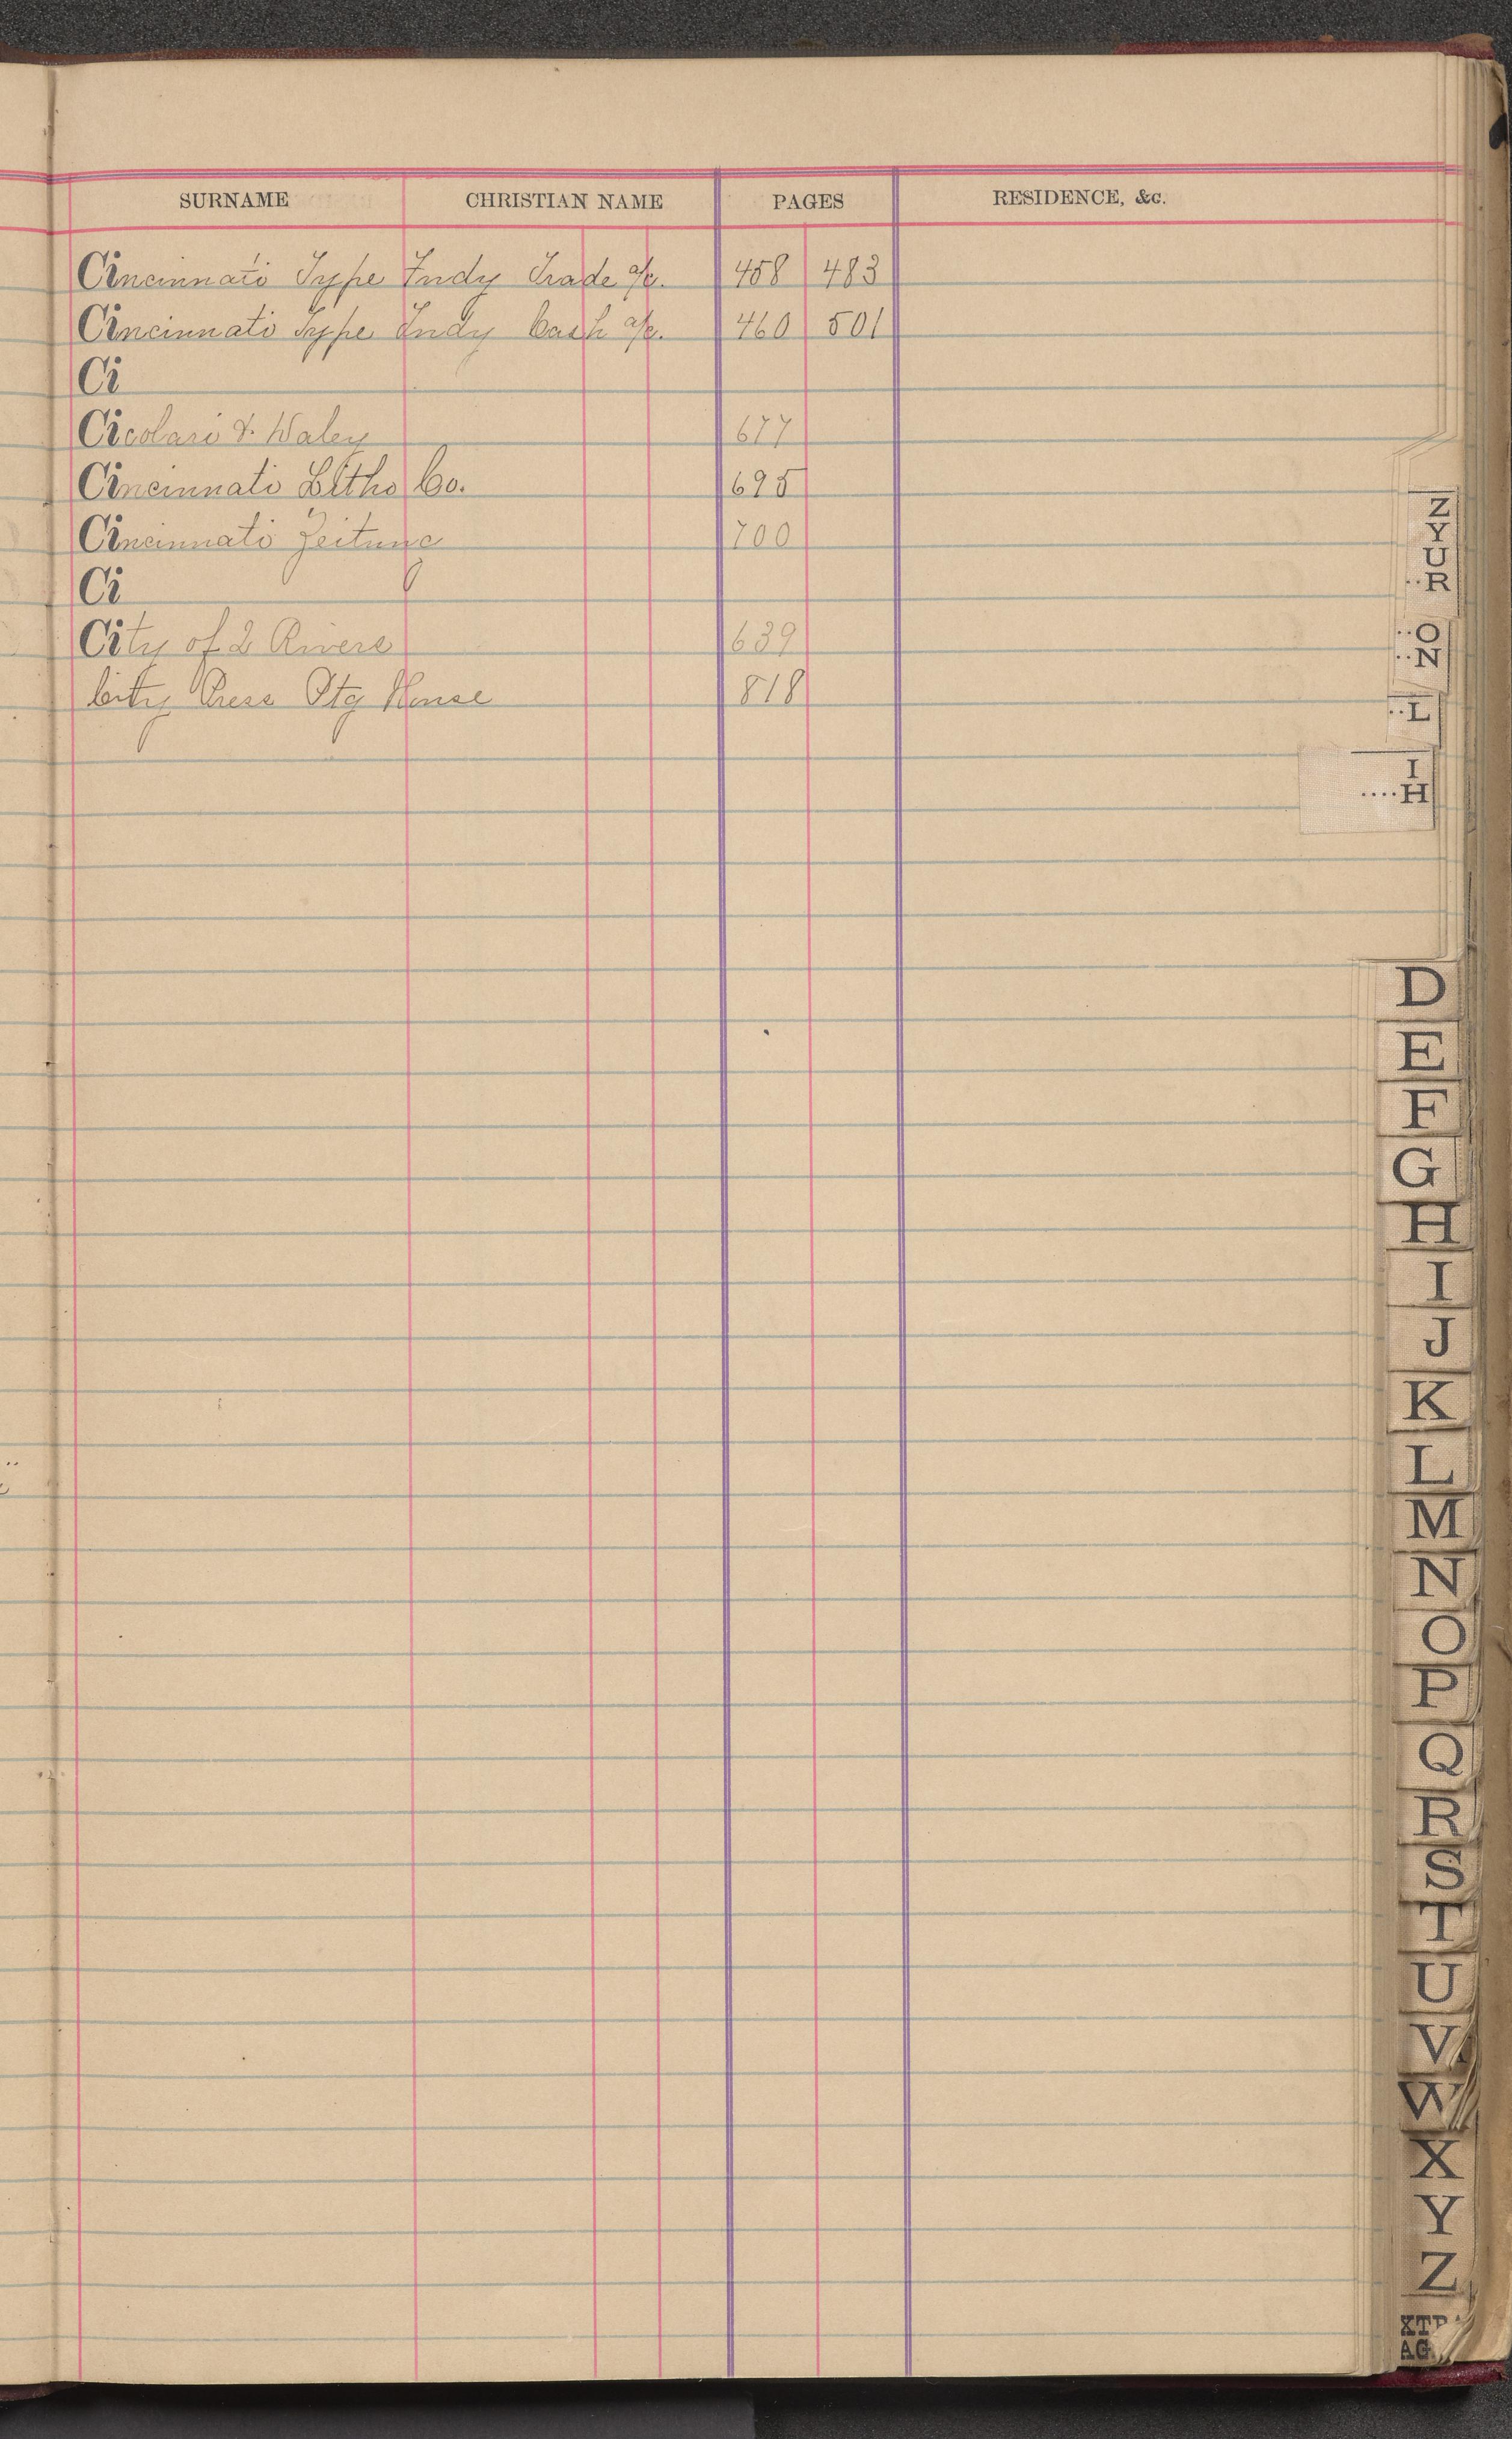 SURNAME CHRISTIAN NAME PAGES RESIDENCE, &c.
Cincinnati Type Fndy Trade a/c. 458 483
Cincinnati Type Fndy Cash a/c. 460 501
Ci
Cicolari & Waley 677
Cincinnati Litho Co. 695
Cincinnati Zeitung 700
Ci
City of 2 Rivers 639
City Press Ptg House 818
Z
Y
U
..R
..O
..N
..L
I
....H
D
E
F
G
H
I
J
K
L
M
N
O
P
Q
R
S
T
U
V
W
X
Y
Z